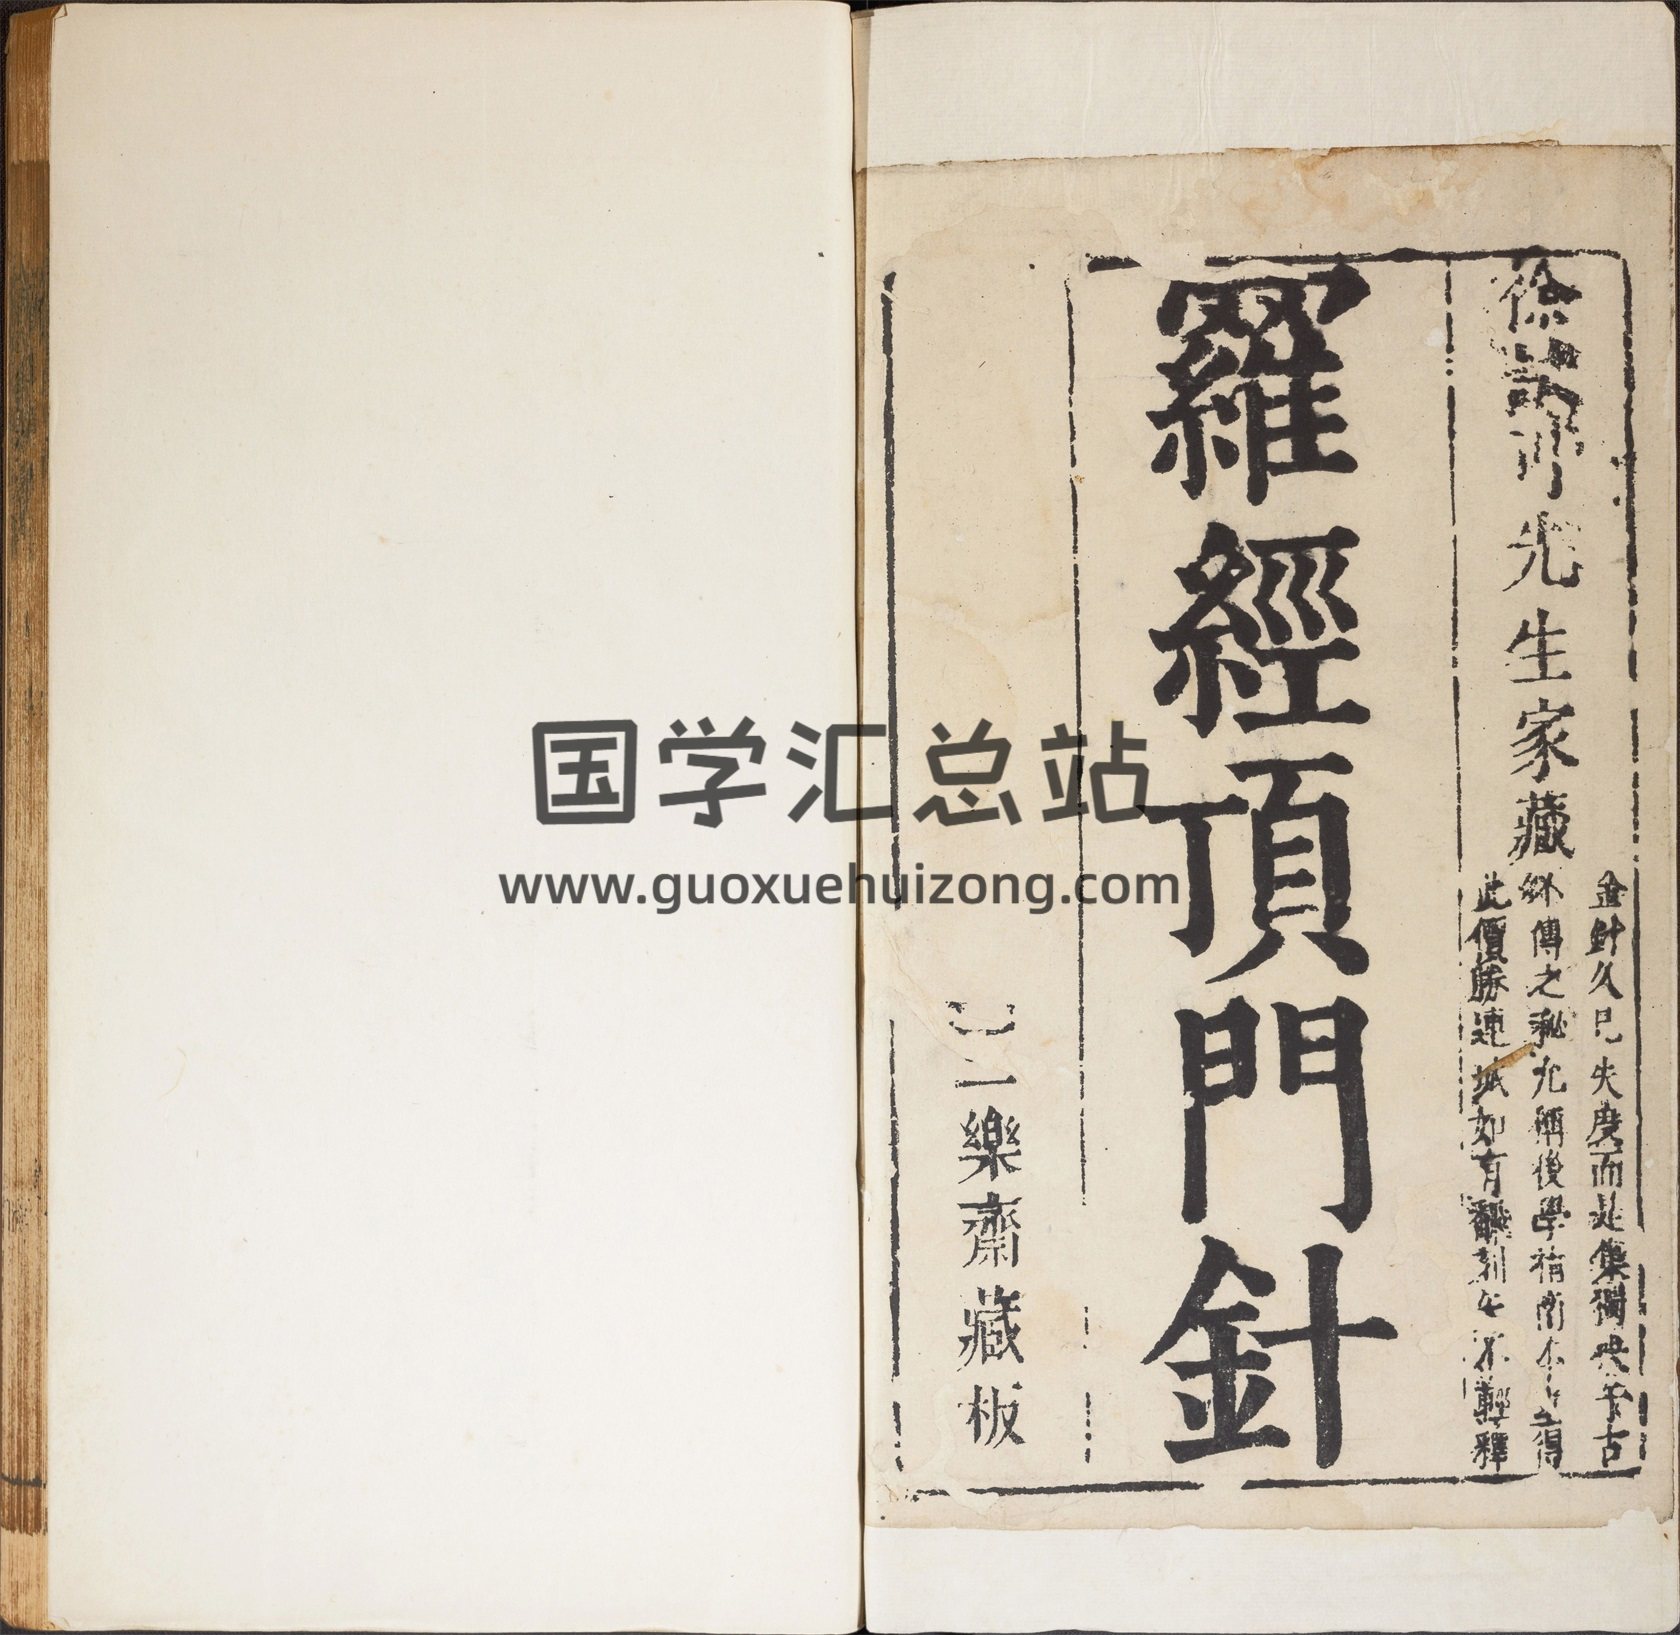 徐 先生家藏
金針久已失度而是集獨映千古
不傳之秘尤稱後學指南 得
此價勝連城如有翻刻 不輕釋
羅經頂門針
二樂齋藏板
国学汇总站
www.guoxuehuizong.com